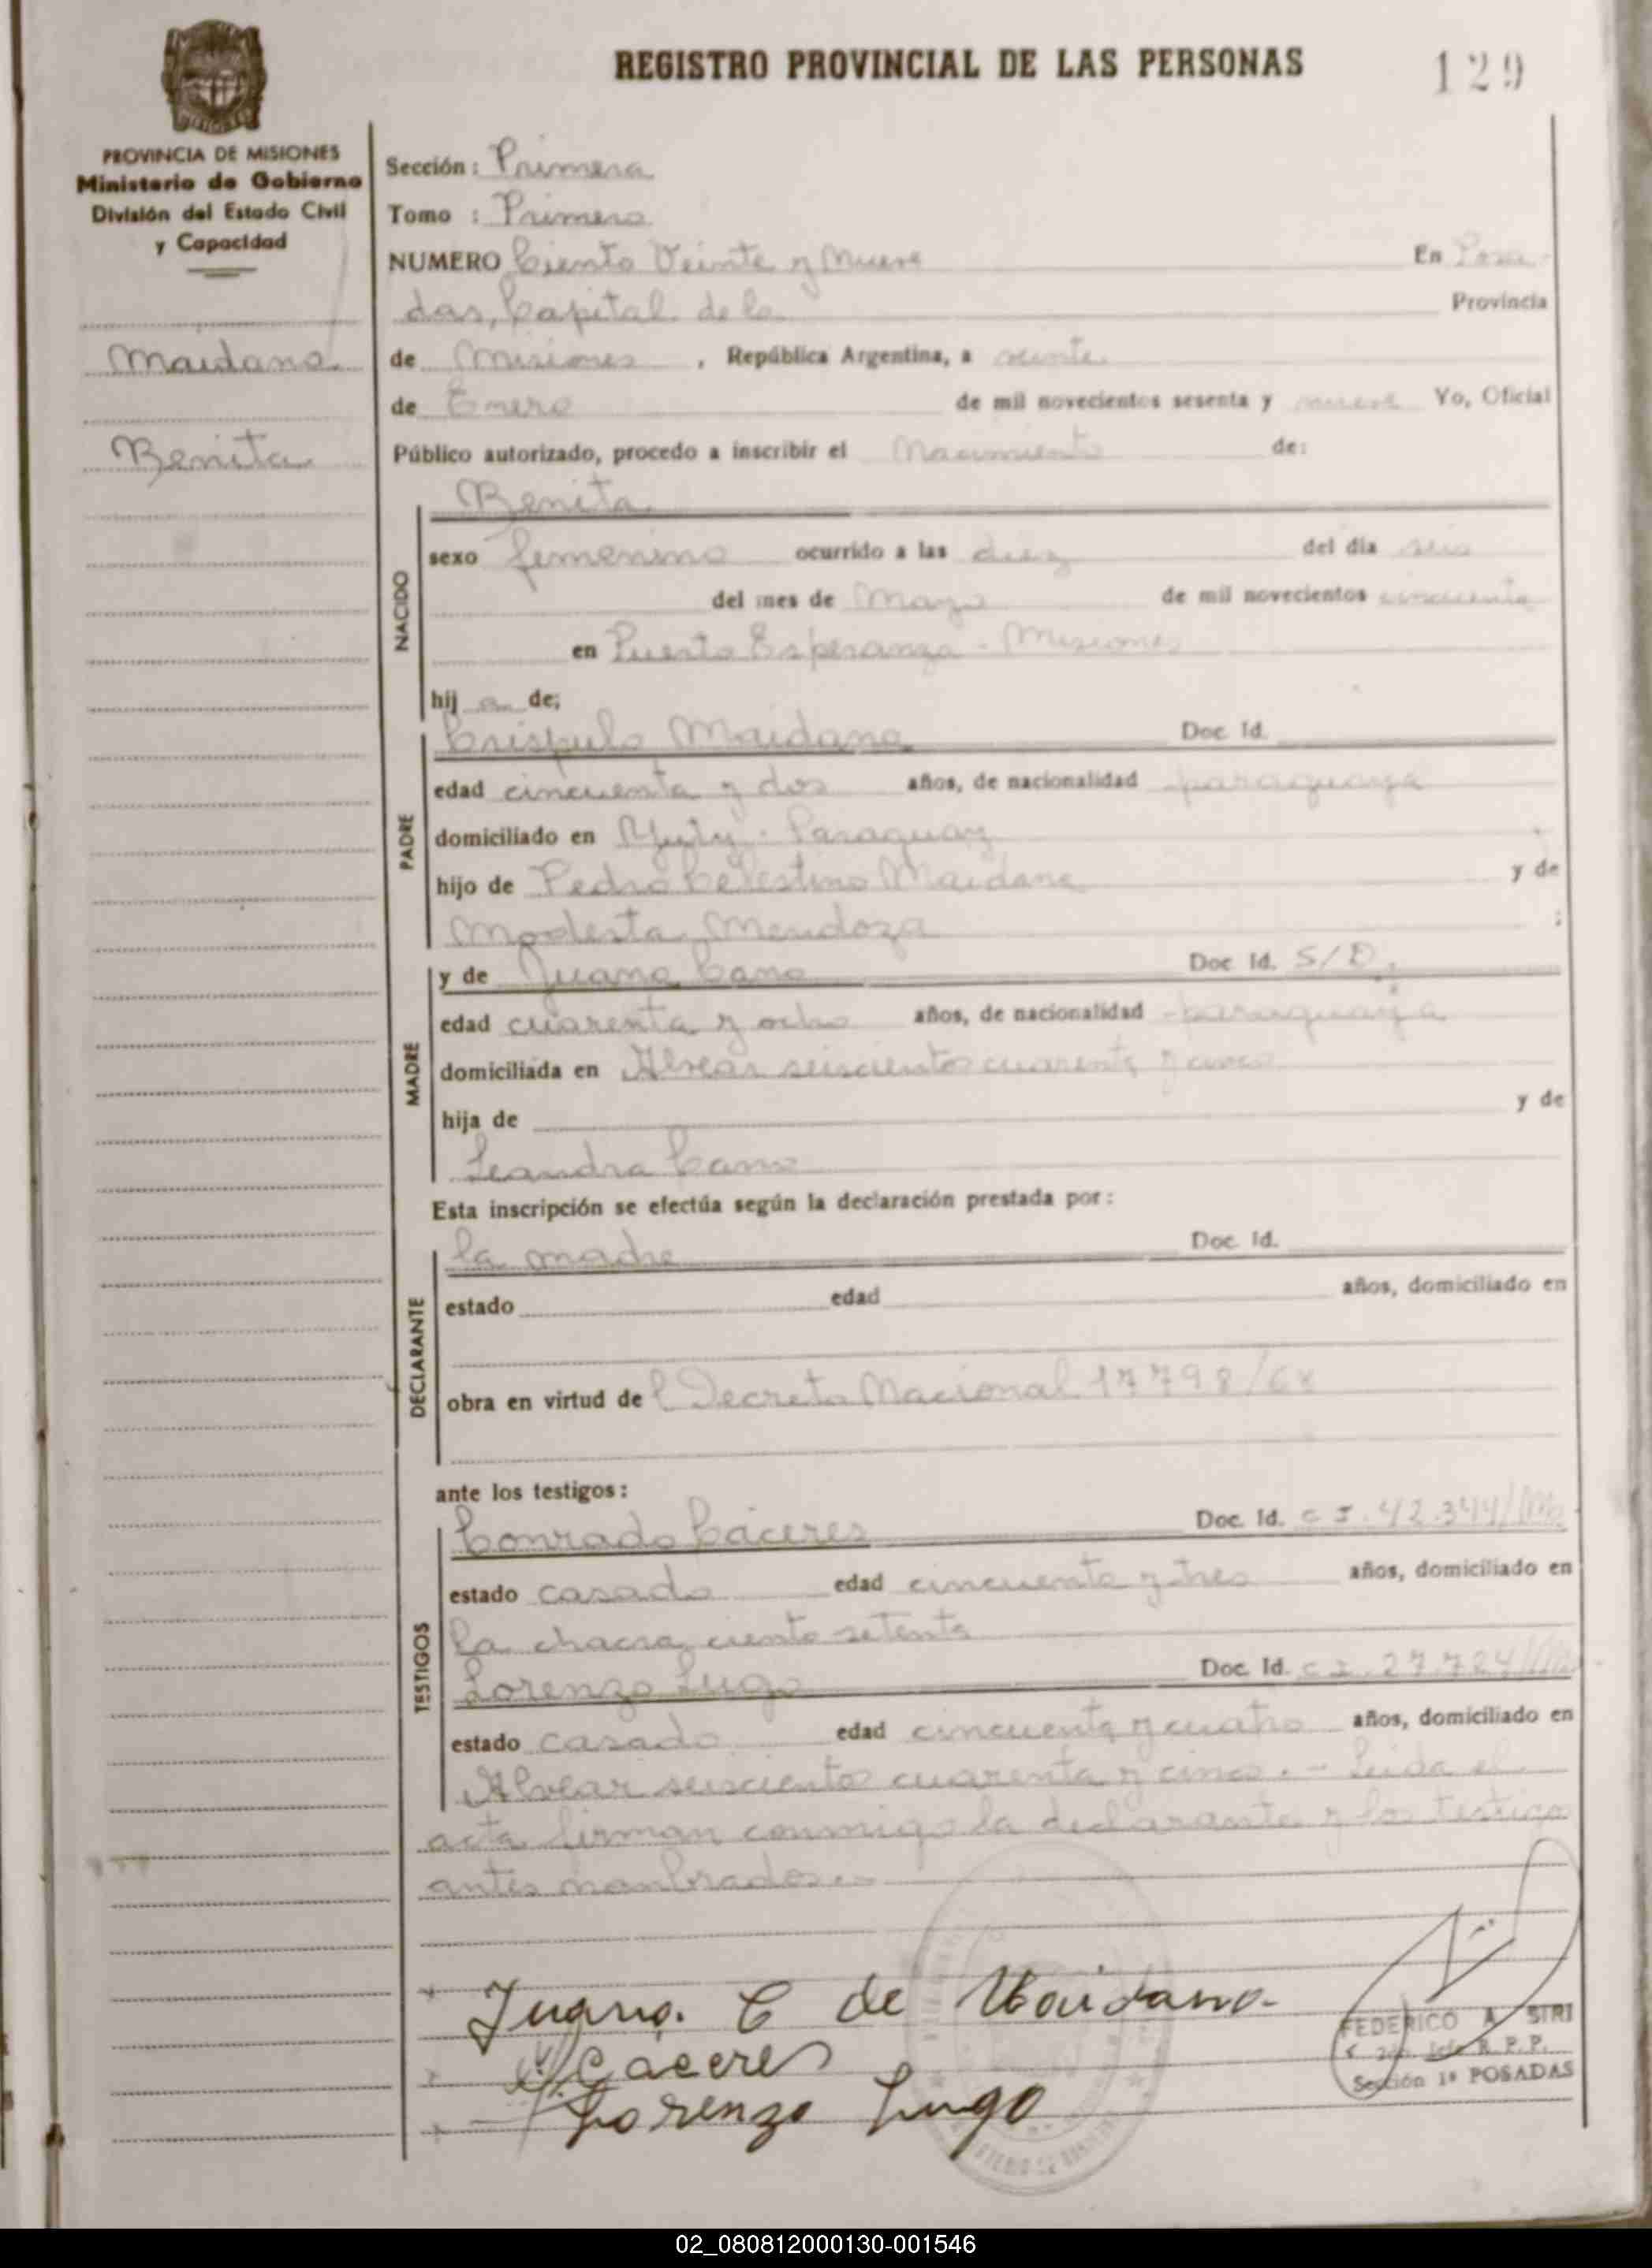 REGISTRO PROVINCIAL DE LAS PERSONAS
129
PROVINCIA DE MISIONES
Ministerio de Gobierno
División del Estado Civil
y Capacidad
Maidana
Benita
Sección: Primera
Tomo : Primero
NUMERO Ciento Veinte y Nueve En Posa-
das, Capital de la Provincia
de Misiones , República Argentina, a veinte
de Enero de mil novecientos sesenta y nueve Yo, Oficial
Público autorizado, procedo a inscribir el Nacimiento de:
NACIDO
Benita
sexo femenino ocurrido a las diez del dia seis
del mes de Mayo de mil novecientos cincuenta
en Puerto Esperanza - Misiones
hij a de;
PADRE
Crispulo Maidana Doc. Id.
edad cincuenta y dos años, de nacionalidad paraguaya
domiciliado en Yuty - Paraguay
hijo de Pedro Celestino Maidana y de
Modesta Mendoza ;
MADRE
y de Juana Cano Doc. Id. S/D.
edad cuarenta y ocho años, de nacionalidad paraguaya
domiciliada en Alvear seiscientos cuarenta y cinco
hija de y de
Leandra Cano
Esta inscripción se efectúa según la declaración prestada por:
DECLARANTE
la madre Doc. Id.
estado edad años, domiciliado en
obra en virtud de l Decreto Nacional 17798/68
ante los testigos:
TESTIGOS
Conrado Cáceres Doc. Id. C.I. 42.344/
estado casado edad cincuenta y tres años, domiciliado en
la chacra ciento setenta
Lorenzo Lugo Doc. Id. C.I. 27.724/
estado casado edad cincuenta y cuatro años, domiciliado en
Alvear seiscientos cuarenta y cinco.- Leida el
acta firman conmigo la declarante y los testigos
antes nombrados.-
Juana C de Maidana
Caceres
Lorenzo Lugo
FEDERICO A SIRI
Jefe R.P.P.
Sección 1ª POSADAS
02_080812000130-001546